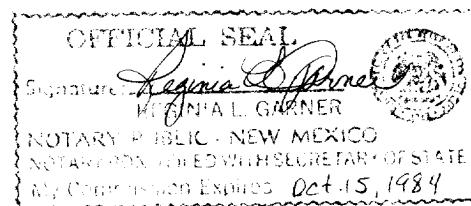 OFFICIAL SEAL
Signature: Reginia L Garner
REGINIA L. GARNER
NOTARY PUBLIC - NEW MEXICO
NOTARY BOND FILED WITH SECRETARY OF STATE
My Commission Expires Oct. 15, 1984